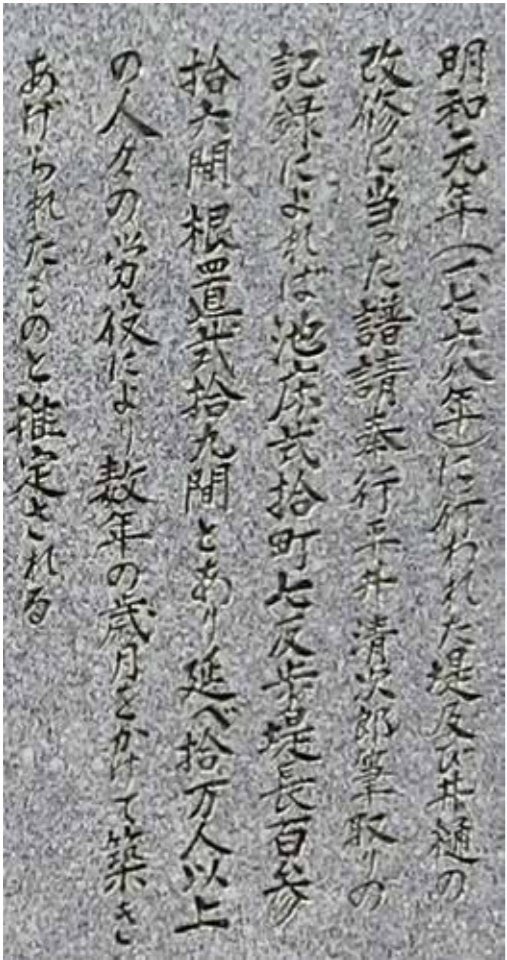 明和元年(一七六八年)に行われた堤及び井樋の
改修に当った譜請奉行平井清次郎筆取りの
記録によれば池床弐拾町七反歩堤長百参
拾六間根置弐拾九間とあり延べ拾万人以上
の人々の労役により数年の歳月をかけて築き
あげられたものと推定される